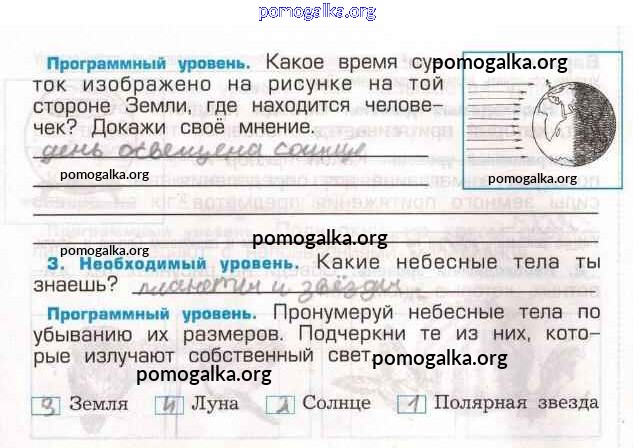 pomogalka.org
Программный уровень. Какое время су-
pomogalka.org
ток изображено на рисунке на той
стороне Земли, где находится челове-
чек? Докажи своё мнение.
день освещена солнце
pomogalka.org
pomogalka.org
pomogalka.org
3. Необходимый уровень. Какие небесные тела ты
знаешь? планеты и звёзды
Программный уровень. Пронумеруй небесные тела по
убыванию их размеров. Подчеркни те из них, кото-
рые излучают собственный свет.
pomogalka.org
pomogalka.org
3 Земля 4 Луна 2 Солнце 1 Полярная звезда